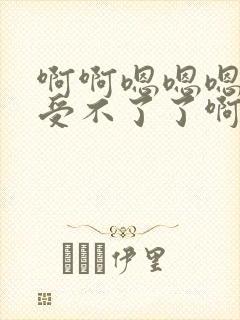 啊啊嗯嗯嗯
受不了了啊
伊里